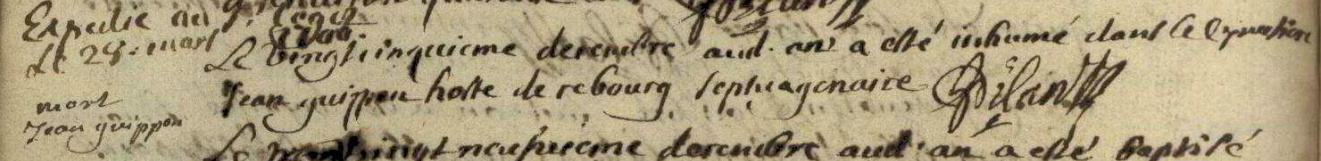 Expedie au
Le 28. mart
Le vingtcinquieme decembre aud. an a esté inhumé dans le Cymetiere
mort
Jean guippon
Jean guippon hoste de rebourg septuagenaire
Le vingtneufvieme decembre aud. an a esté baptisé